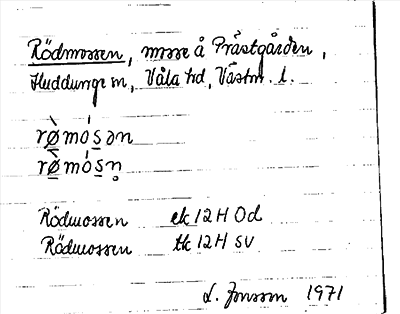 Rödmossen, mosse å Prästgården,
Huddunge sn, Våla hd, Västm. l.
rø̀mósən
rø̀mósn̥
Rödmossen ek 12H Od
Rödmossen tk 12H SV
L. Jonsson 1971